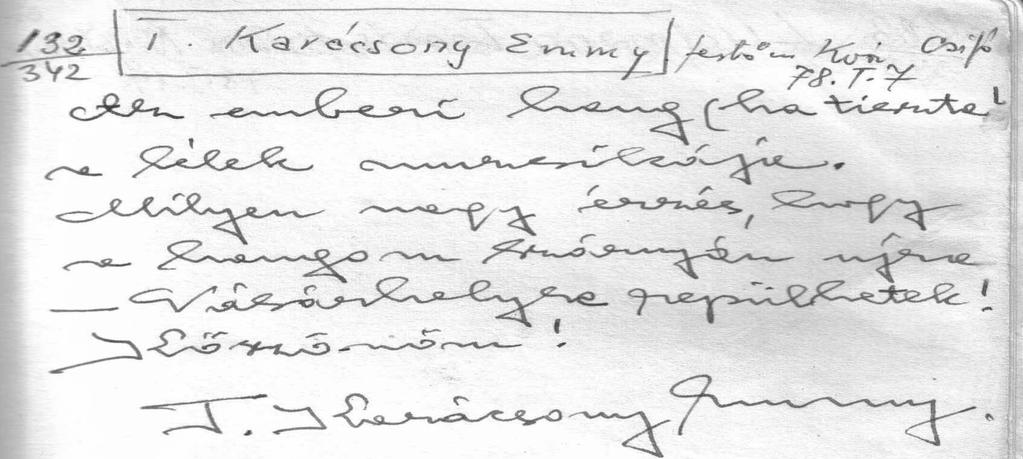 132
342
T. Karácsony Emmy festőm Kvár Csifó
78. I. 7
Az emberi hang (ha tiszta)
a lélek muzsikája.
Milyen nagy érzés, hogy
a hangom szárnyán újra
Vásárhelyre repülhetek!
Köszönöm!
T. Karácsony Emmy.